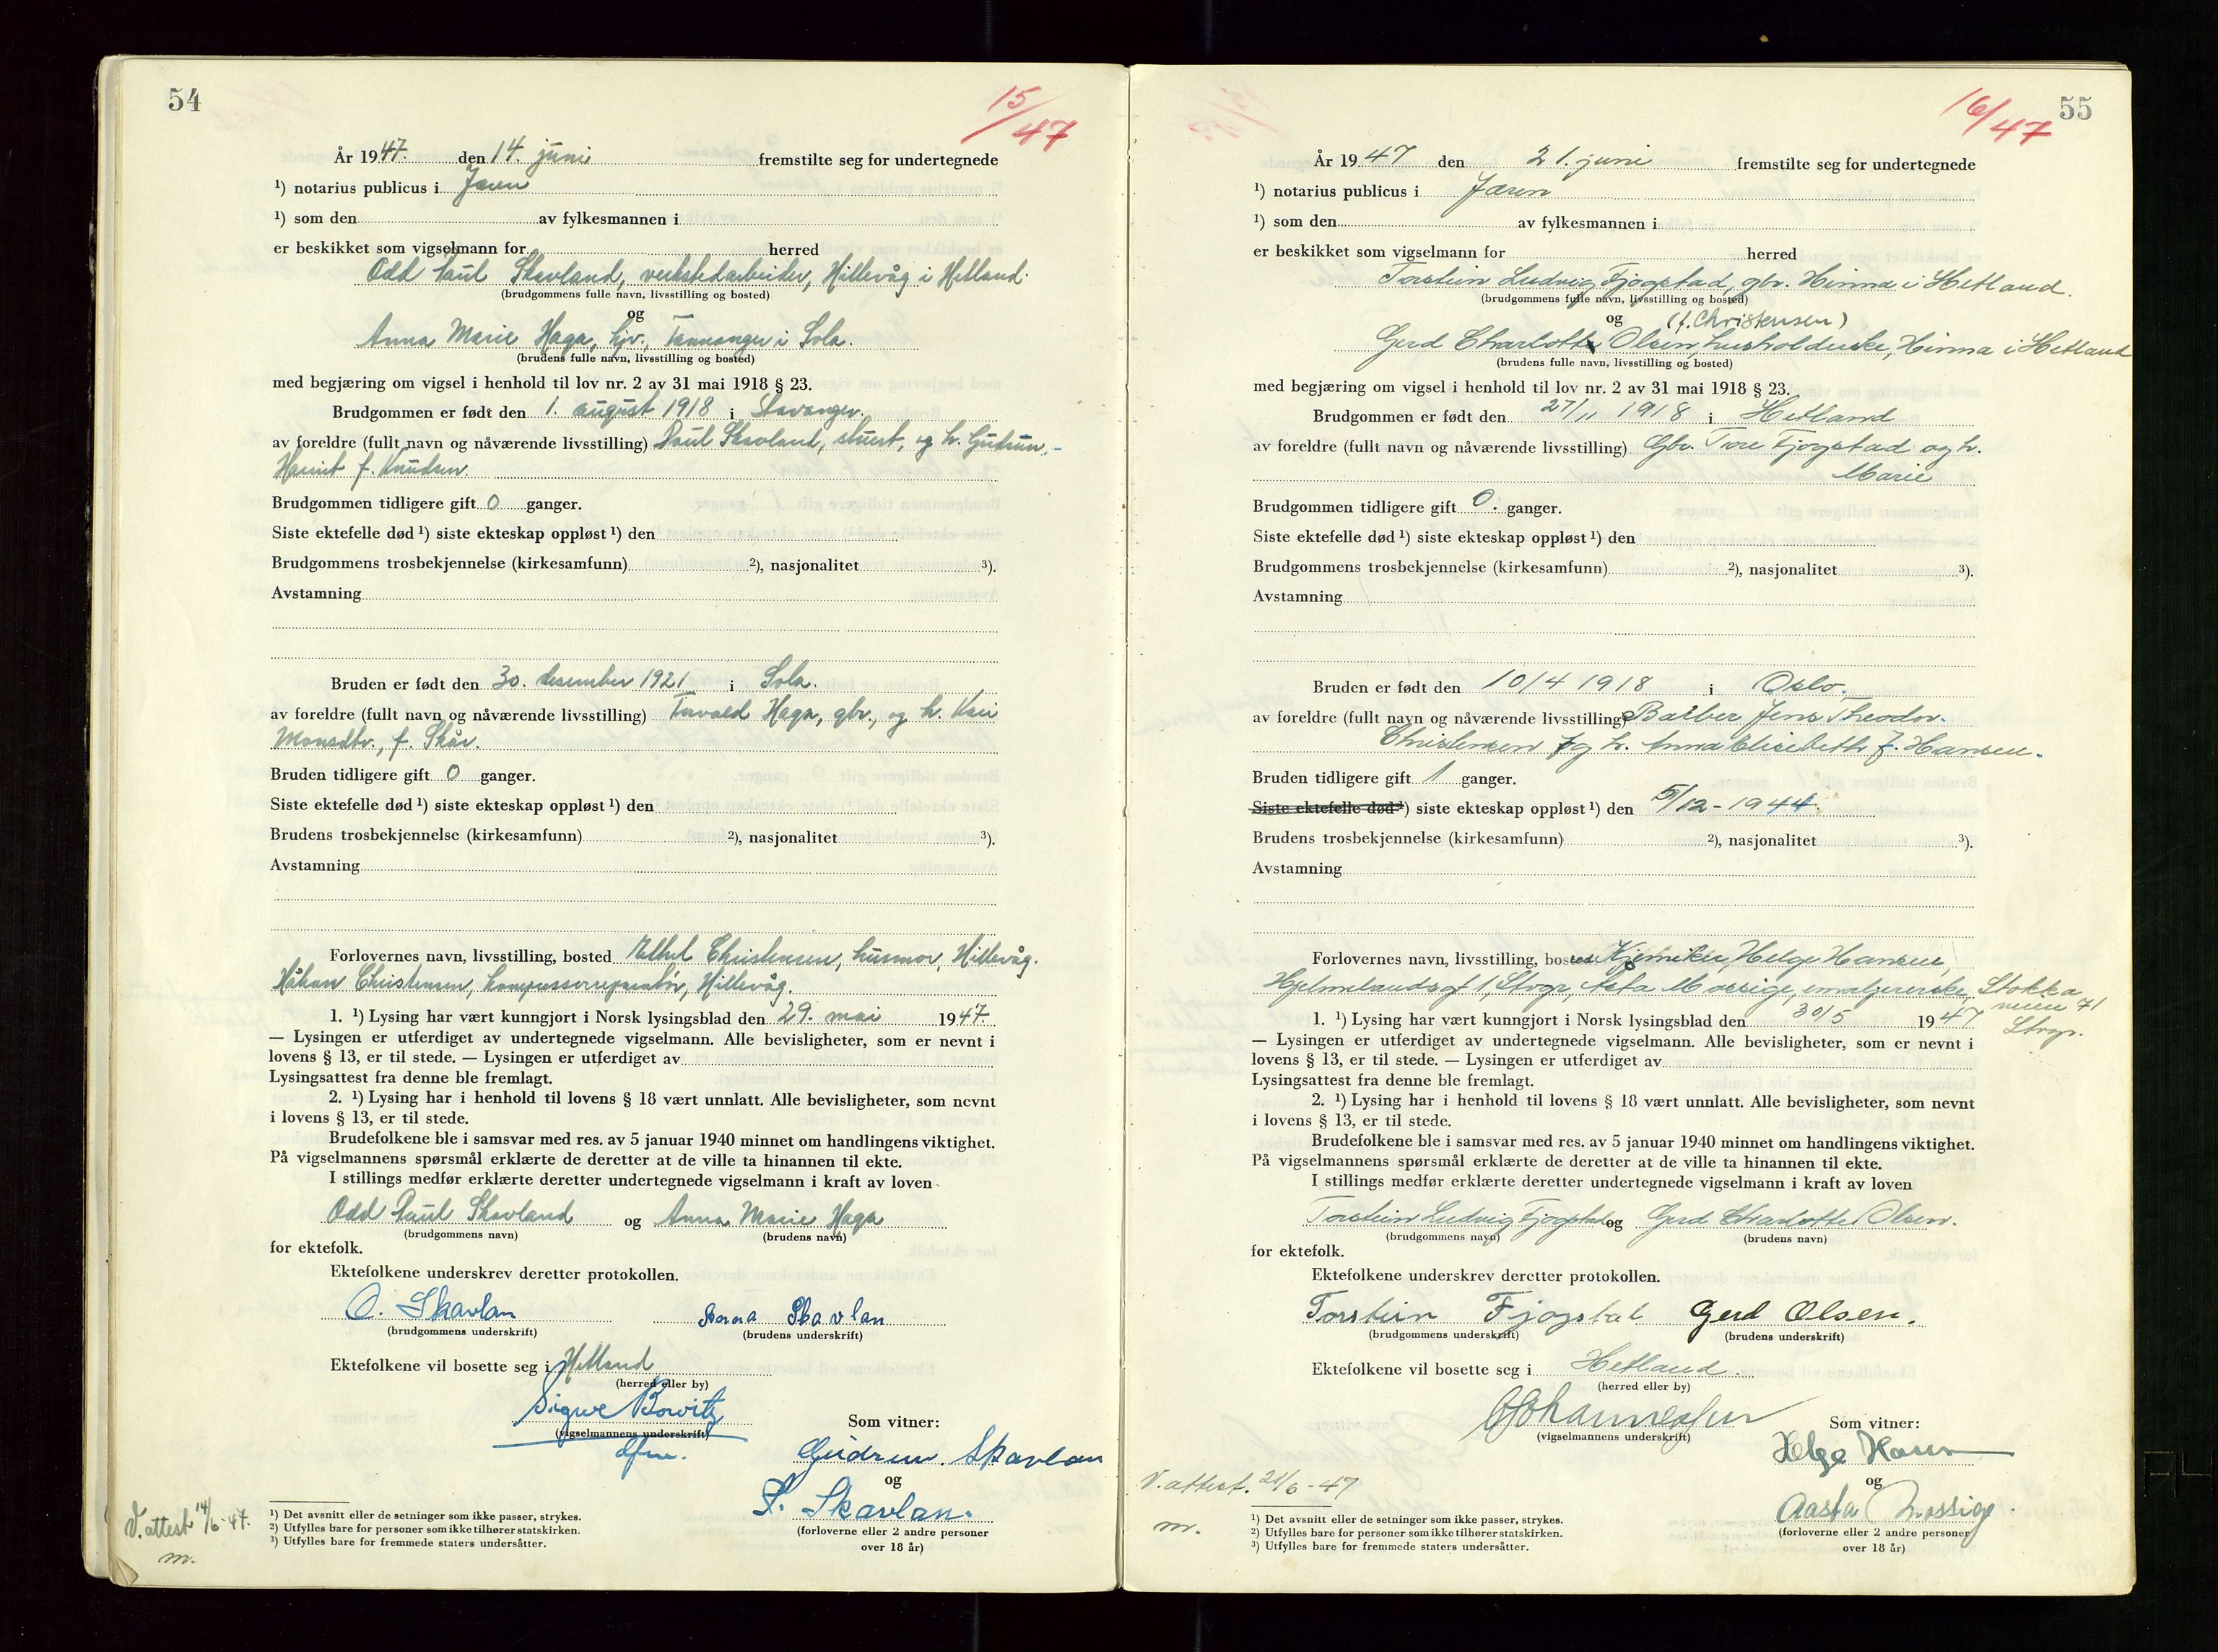 54
15/47
År 1947. den 14. juni fremstilte seg for undertegnede
¹) notarius publicus i Jæren
¹) som den av fylkesmannen i
er beskikket som vigselmann for herred
Odd Paul Skavland, verkstedarbeider, Hillevåg i Hetland.
(brudgommens fulle navn, livsstilling og bosted)
og
Anna Marie Haga, hjv., Tananger i Sola.
(brudens fulle navn, livsstilling og bosted)
med begjæring om vigsel i henhold til lov nr. 2 av 31 mai 1918 § 23.
Brudgommen er født den 1. august 1918 i Stavanger.
av foreldre (fullt navn og nåværende livsstilling) Paul Skavland, stuert, og h. Gudrun
Harriet f. Knudsen.
Brudgommen tidligere gift 0 ganger.
Siste ektefelle død ¹) siste ekteskap oppløst ¹) den
Brudgommens trosbekjennelse (kirkesamfunn) ²), nasjonalitet ³).
Avstamning
Bruden er født den 30. desember 1921 i Sola.
av foreldre (fullt navn og nåværende livsstilling) Torvald Haga, gbr., og h. Kari
Monsdtr., f. Skår.
Bruden tidligere gift 0 ganger.
Siste ektefelle død ¹) siste ekteskap oppløst ¹) den
Brudens trosbekjennelse (kirkesamfunn) ²), nasjonalitet ³).
Avstamning
Forlovernes navn, livsstilling, bosted Ethel Christensen, husmor, Hillevåg.
Håkon Christensen, kompassreparatør, Hillevåg.
1. ¹) Lysing har vært kunngjort i Norsk lysingsblad den 29. mai 1947.
— Lysingen er utferdiget av undertegnede vigselmann. Alle bevisligheter, som er nevnt i
lovens § 13, er til stede. — Lysingen er utferdiget av
Lysingsattest fra denne ble fremlagt.
2. ¹) Lysing har i henhold til lovens § 18 vært unnlatt. Alle bevisligheter, som nevnt
i lovens § 13, er til stede.
Brudefolkene ble i samsvar med res. av 5 januar 1940 minnet om handlingens viktighet.
På vigselmannens spørsmål erklærte de deretter at de ville ta hinannen til ekte.
I stillings medfør erklærte deretter undertegnede vigselmann i kraft av loven
Odd Paul Skavland og Anna Marie Haga
(brudgommens navn) (brudens navn)
for ektefolk.
Ektefolkene underskrev deretter protokollen.
O. Skavlan Anna Skavlan
(brudgommens underskrift) (brudens underskrift)
Ektefolkene vil bosette seg i Hetland
(herred eller by)
Sigwe Bowitz
(vigselmannens underskrift)
dfm.
Som vitner:
Gudrun Skavlan
og
S. Skavlan.
(forloverne eller 2 andre personer
over 18 år)
V. attest 14/6-47.
m.
¹) Det avsnitt eller de setninger som ikke passer, strykes.
²) Utfylles bare for personer som ikke tilhører statskirken.
³) Utfylles bare for fremmede staters undersåtter.
55
16/47
År 1947 den 21. juni fremstilte seg for undertegnede
¹) notarius publicus i Jæren
¹) som den av fylkesmannen i
er beskikket som vigselmann for herred
Torstein Ludvig Fjogstad, gbr. Hinna i Hetland.
(brudgommens fulle navn, livsstilling og bosted)
og (f. Christensen)
Gerd Charlotte Olsen, husholderske, Hinna i Hetland
(brudens fulle navn, livsstilling og bosted)
med begjæring om vigsel i henhold til lov nr. 2 av 31 mai 1918 § 23.
Brudgommen er født den 27/11 1918 i Hetland
av foreldre (fullt navn og nåværende livsstilling) Gbr. Tore Fjogstad og h.
Marie
Brudgommen tidligere gift 0. ganger.
Siste ektefelle død ¹) siste ekteskap oppløst ¹) den
Brudgommens trosbekjennelse (kirkesamfunn) ²), nasjonalitet ³).
Avstamning
Bruden er født den 10/4 1918 i Oslo.
av foreldre (fullt navn og nåværende livsstilling) Barber Jens Theodor
Christensen og h. Anna Elisabeth f. Hansen.
Bruden tidligere gift 1 ganger.
Siste ektefelle død ¹) siste ekteskap oppløst ¹) den 5/12-1944.
Brudens trosbekjennelse (kirkesamfunn) ²), nasjonalitet ³).
Avstamning
Forlovernes navn, livsstilling, bosted Kjemiker Helge Hansen,
Hjelmelandsgt 1, Stvgr, Asta Mossige, emaljererske, Stokka
veien 71
Stvgr.
1. ¹) Lysing har vært kunngjort i Norsk lysingsblad den 30/5 1947
— Lysingen er utferdiget av undertegnede vigselmann. Alle bevisligheter, som er nevnt i
lovens § 13, er til stede. — Lysingen er utferdiget av
Lysingsattest fra denne ble fremlagt.
2. ¹) Lysing har i henhold til lovens § 18 vært unnlatt. Alle bevisligheter, som nevnt
i lovens § 13, er til stede.
Brudefolkene ble i samsvar med res. av 5 januar 1940 minnet om handlingens viktighet.
På vigselmannens spørsmål erklærte de deretter at de ville ta hinannen til ekte.
I stillings medfør erklærte deretter undertegnede vigselmann i kraft av loven
Torstein Ludvig Fjogstad og Gerd Charlotte Olsen.
(brudgommens navn) (brudens navn)
for ektefolk.
Ektefolkene underskrev deretter protokollen.
Torstein Fjogstad Gerd Olsen.
(brudgommens underskrift) (brudens underskrift)
Ektefolkene vil bosette seg i Hetland.
(herred eller by)
(vigselmannens underskrift)
Som vitner:
Helge Hansen
og
Aasta Mossige.
(forloverne eller 2 andre personer
over 18 år)
V. attest. 21/6-47
m.
¹) Det avsnitt eller de setninger som ikke passer, strykes.
²) Utfylles bare for personer som ikke tilhører statskirken.
³) Utfylles bare for fremmede staters undersåtter.